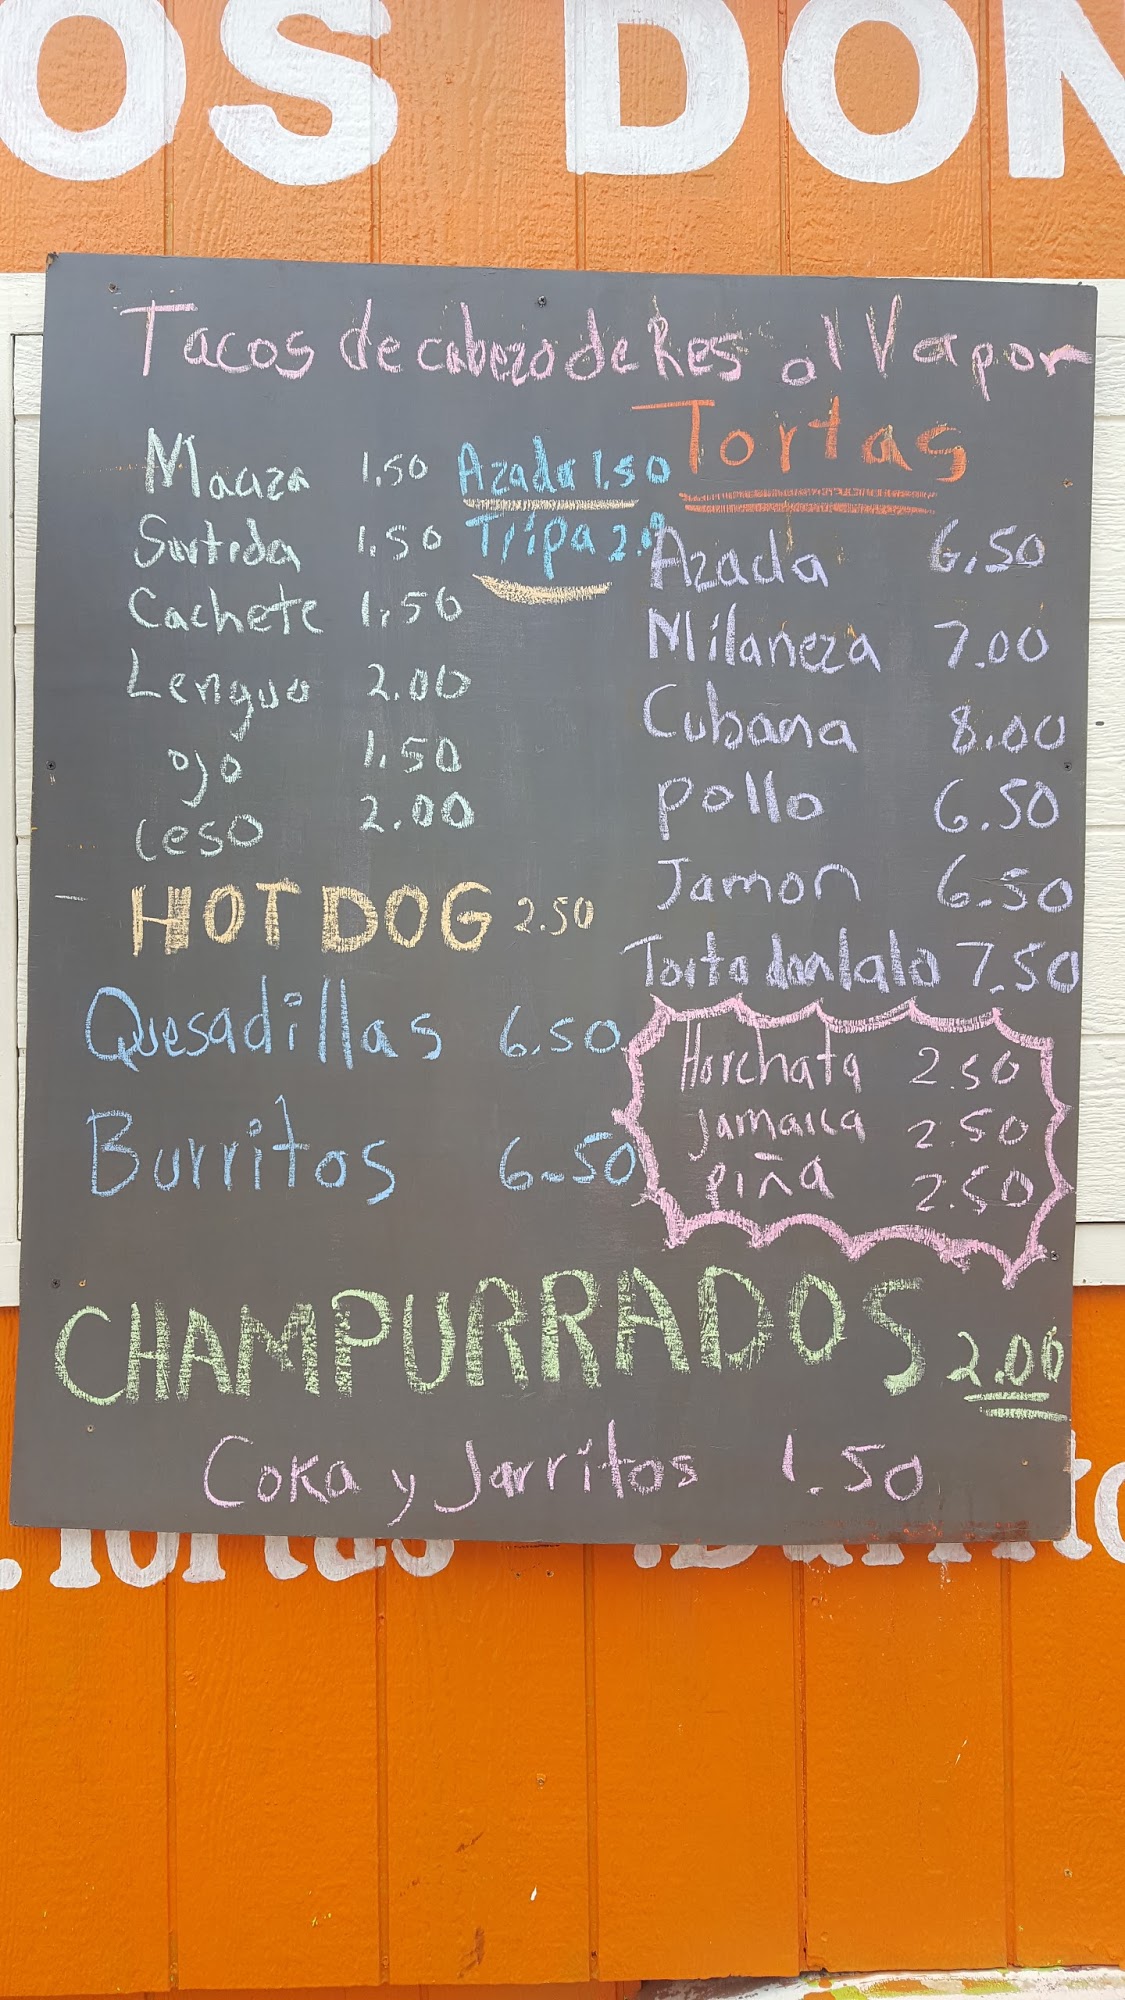 OS DON
Tacos de cabeza de Res al Vapor
Maciza 1.50
Surtida 1.50
Cachete 1.50
Lengua 2.00
ojo 1.50
ceso 2.00
Azada 1.50
Tripa 2.0
HOT DOG 2.50
Quesadillas 6.50
Burritos 6.50
Tortas
Azada 6.50
Milaneza 7.00
Cubana 8.00
pollo 6.50
Jamon 6.50
Torta donlalo 7.50
Horchata 2.50
Jamaica 2.50
piña 2.50
CHAMPURRADOS 2.00
Coka y Jarritos 1.50